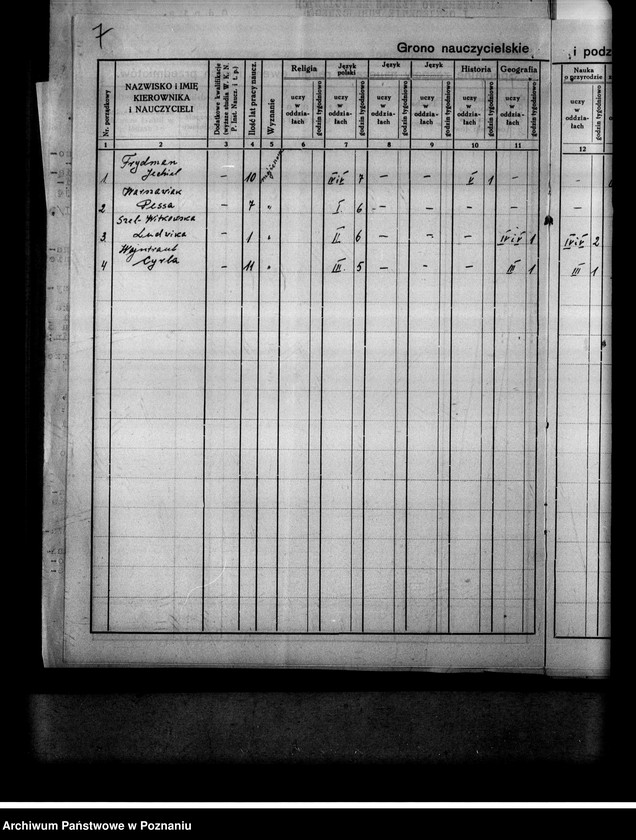 7
Grono nauczycielskie i podz
Nr. porządkowy
NAZWISKO i IMIĘ
KIEROWNIKA
i NAUCZYCIELI
Dodatkowe kwalifikacje
(wyższe studia W. K. N.
P. Inst. Naucz. i t. p.)
Ilość lat pracy naucz.
Wyznanie
Religia
uczy
w
oddzia-
łach
godzin tygodniowo
Język
polski
uczy
w
oddzia-
łach
godzin tygodniowo
Język
uczy
w
oddzia-
łach
godzin tygodniowo
Język
uczy
w
oddzia-
łach
godzin tygodniowo
Historia
uczy
w
oddzia-
łach
godzin tygodniowo
Geografia
uczy
w
oddzia-
łach
godzin tygodniowo
Nauka
o przyrodzie
uczy
w
oddzia-
łach
godzin tygodniowo
1 2 3 4 5 6 7 8 9 10 11 12
Frydman
1 Jechiel — 10 IV i V 7 — — V 1 — —
Warszawiak
2 Pessa — 7 „ I. 6 — — — — —
Szel-Witkowska
3 Ludwika — 1 „ II. 6 — — — IV i V 1 IV i V 2
Wajntraub
4 Cyrla — 11 „ III. 5 — — — III 1 III 1
Archiwum Państwowe w Poznaniu